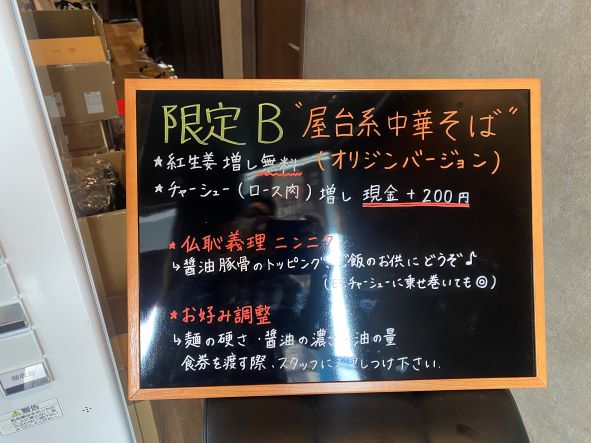 限定B "屋台系中華そば"
★紅生姜増し無料 (オリジンバージョン)
★チャーシュー(ロース肉)増し 現金+200円
★仏恥義理ニンニク
↳醤油豚骨のトッピング、ご飯のお供にどうぞ♪
チャーシューに乗せ巻いても◎)
★お好み調整
↳麺の硬さ・醤油の濃さ・油の量
食券を渡す際、スタッフに し つけ下さい.
警告